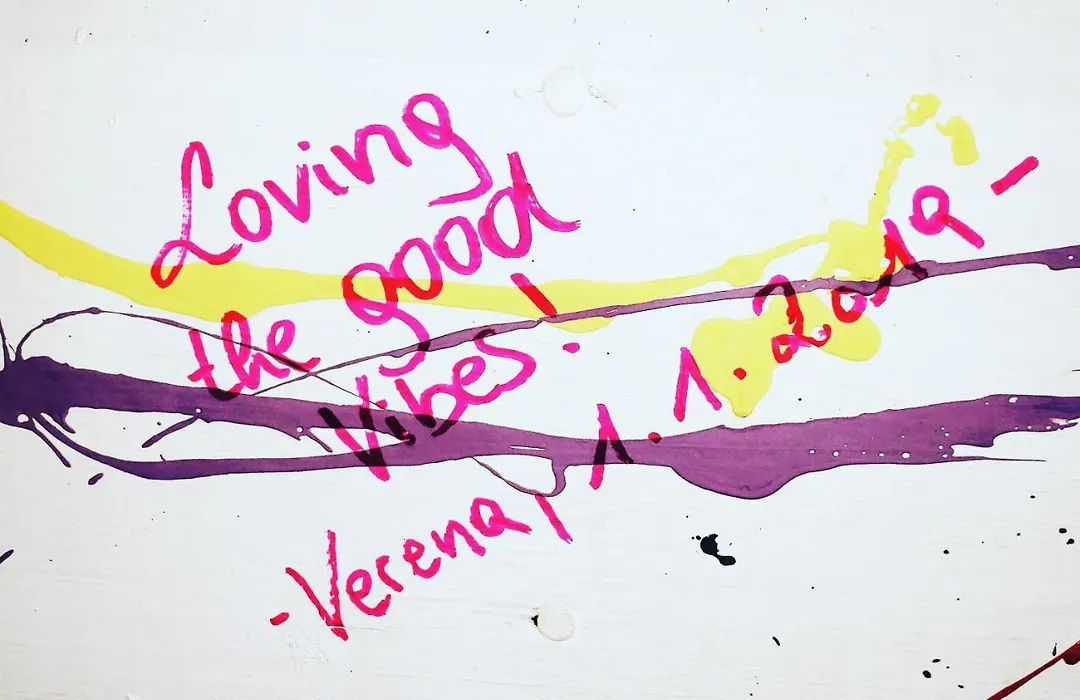 Loving
the good
Vibes!
-Verena, 1.1.2019-